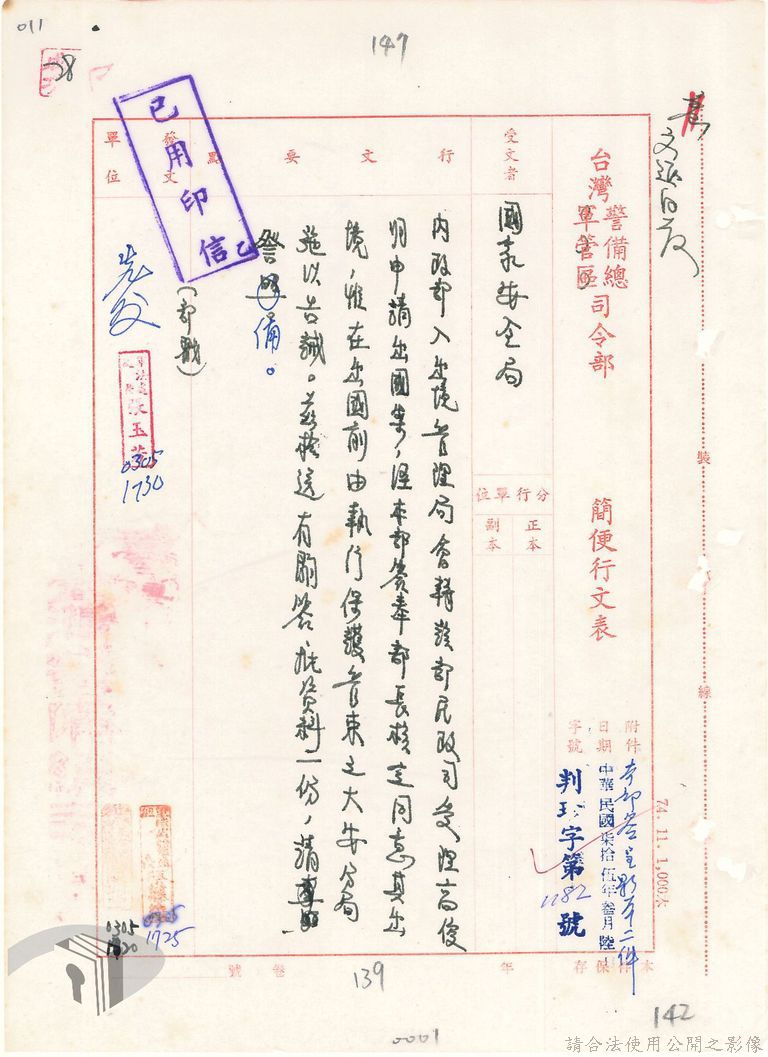 011
147
28
已用印信
台灣警備總司令部
軍管區
簡便行文表
附件
本部簽呈影本二件
日期
中華民國柒拾伍年叁月陸
字號
判珍字第1182號
受文者
國家安全局
分行單位
正本
副本
行文要點
內政部入出境管理局會轉該部民政司受理高俊
明申請出國案,經本部簽奉部長核定同意其出
境,惟在出國前由執行保護管束之大安分局
施以告誡。茲檢送有關簽、批資料一份,請
督
備。
(部戳)
發文單位
先發
張玉
0305
1730
0305
1725
0305
1720
裝
線
74.11.1,000本
本件保存
年
卷
號
139
142
0001
請合法使用公開之影像